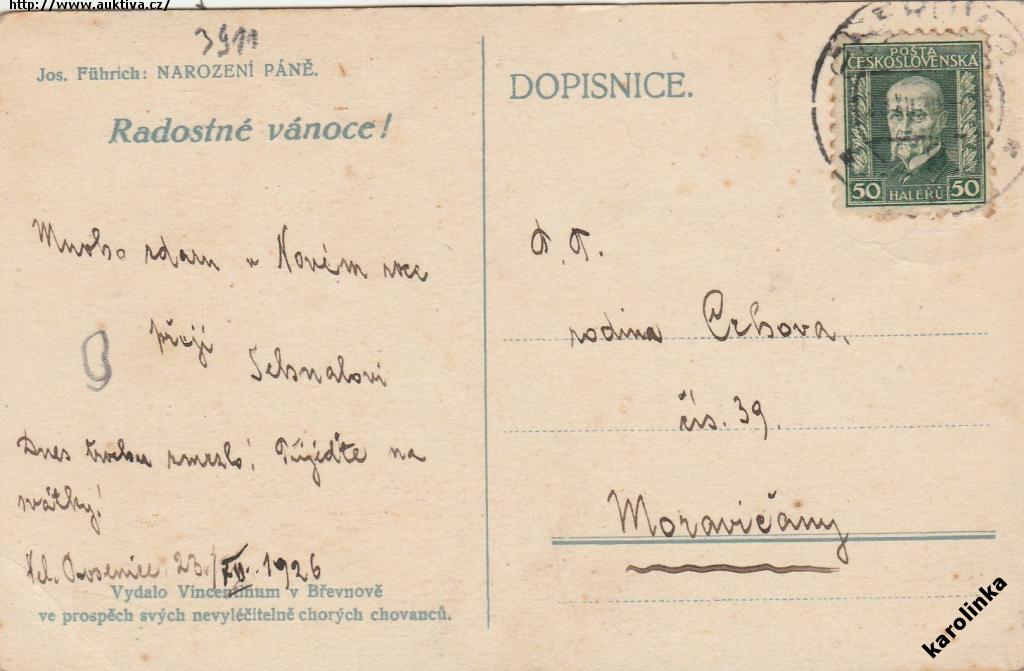 http://www.auktiva.cz/
3911
Jos. Führich: NAROZENÍ PÁNĚ.
Radostné vánoce!
Mnoho zdaru v Novém roce
přeji
Dnes trochu zmrzlo! Přijeďte na
svátky!
23./XII. 1926
Vydalo Vincentinum v Břevnově
ve prospěch svých nevyléčitelně chorých chovanců.
DOPISNICE.
POŠTA
ČESKOSLOVENSKÁ
50 HALÉŘŮ 50
T. T.
rodina Crhova,
čís. 39.
Moravičany
karolinka